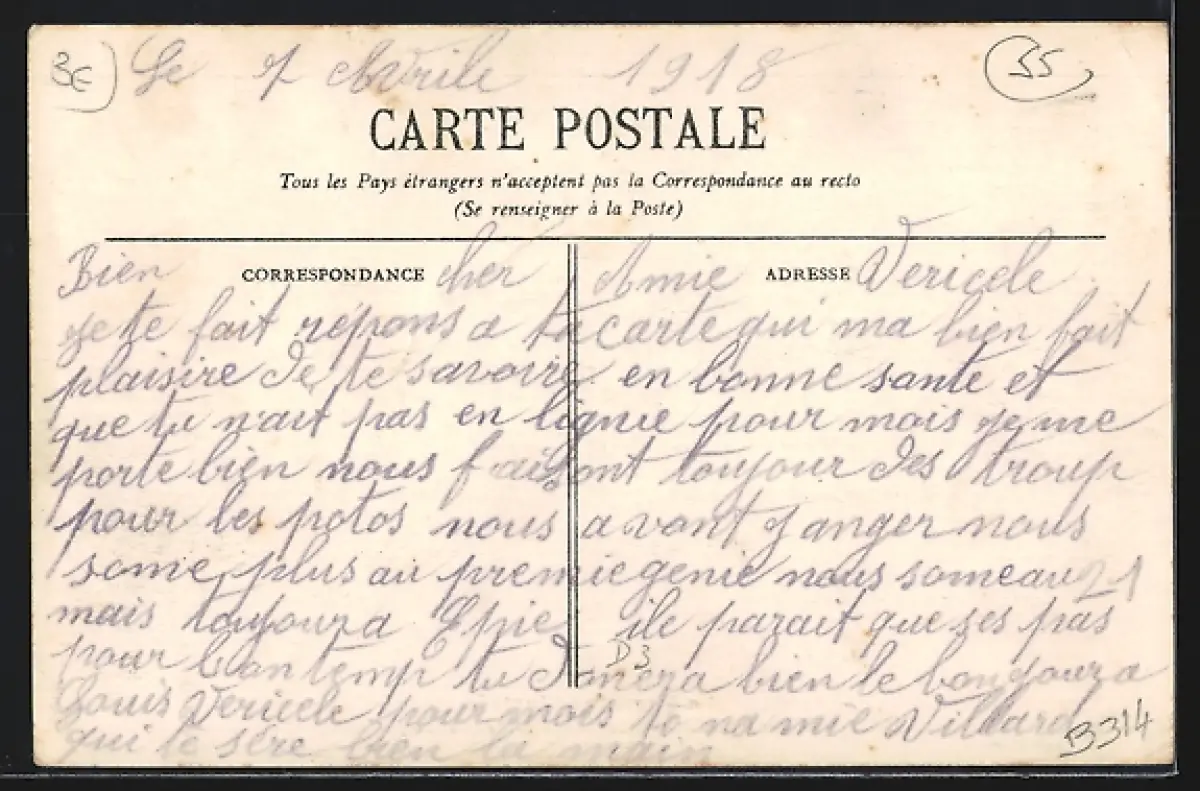 3€
Le 7 Avrile 1918
55
CARTE POSTALE
Tous les Pays étrangers n'acceptent pas la Correspondance au recto
(Se renseigner à la Poste)
CORRESPONDANCE
ADRESSE
Bien cher Amie Vericele
je te fait répons a ta carte qui ma bien fait
plaisire de te savoire en bonne sante et
que tu n'ait pas en lignie pour mois je me
porte bien nous faisont toujour des troup
pour les potos nous avont j'anger nous
some plus au premie genie nous some au 21
mais toujour a Epie ile parait que ses pas
pour lon temp tu donera bien le bonjour a
Louis Vericele pour mois to na mie Villard
qui te sere bien la main
D3
B314